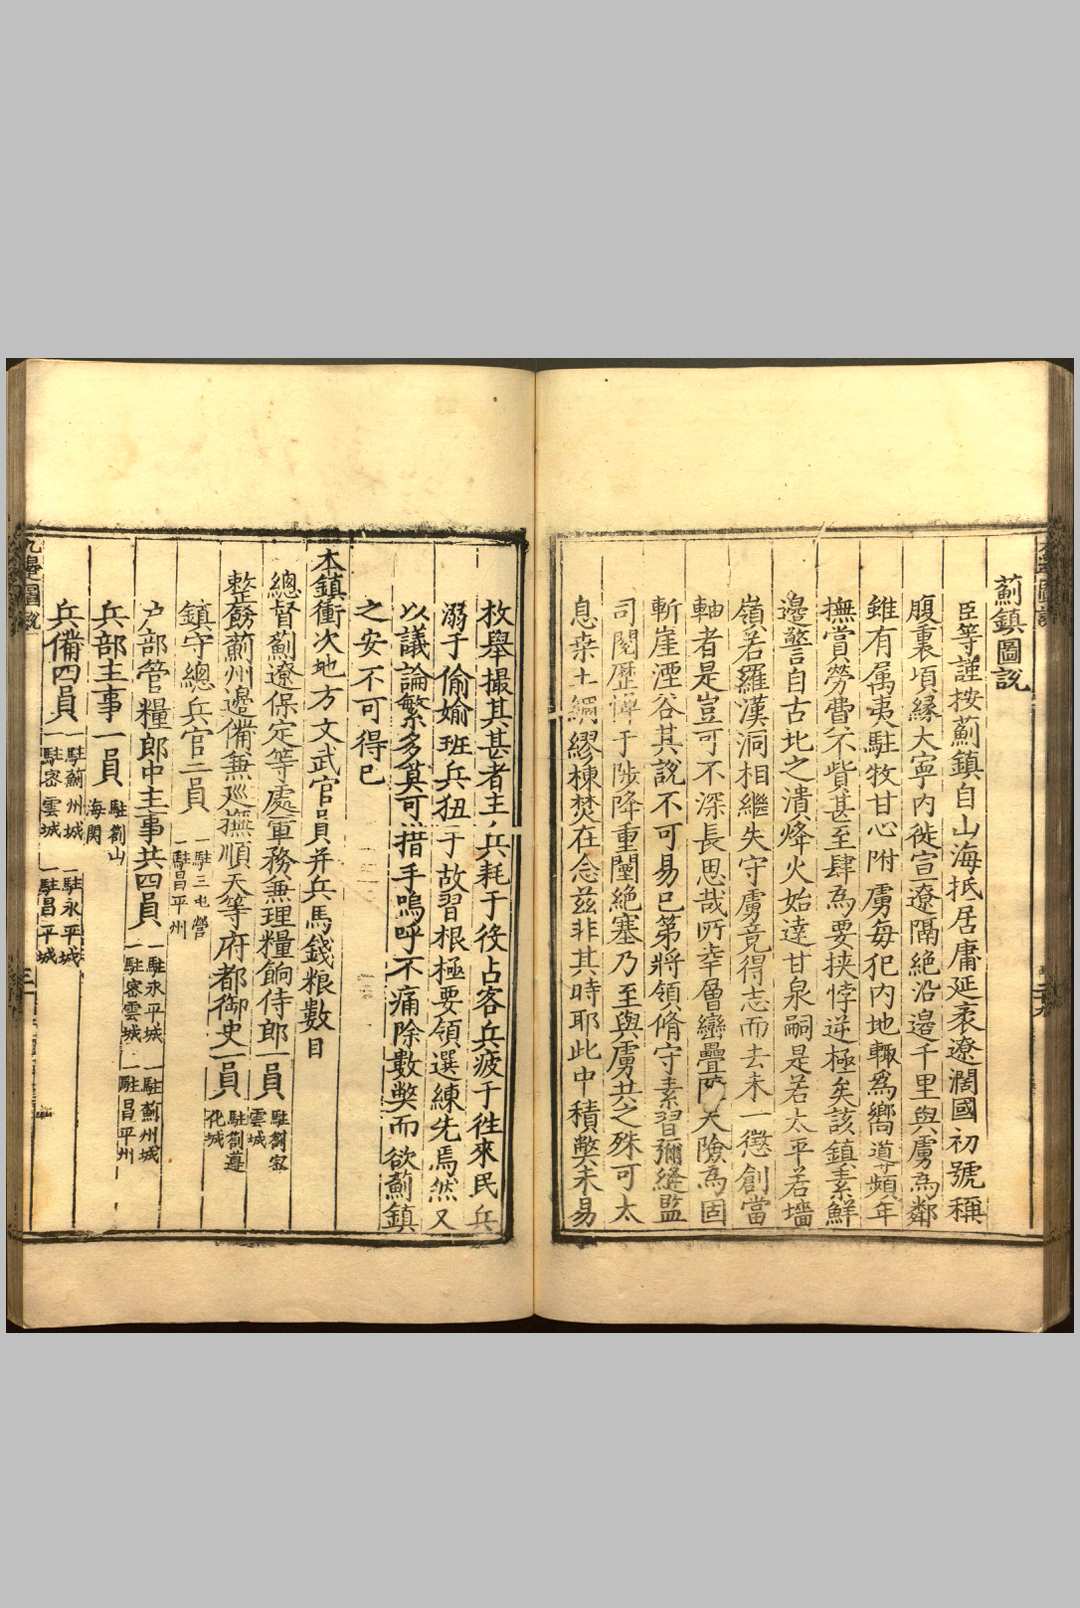 薊鎮圖説
臣等謹按薊鎮自山海抵居庸延袤遼濶國初號稱
腹裏項緣大寧内徙宣遼隔絶沿邊千里與虜爲鄰
雖有属夷駐牧甘心附虜每犯内地輙爲嚮導頻年
撫賞勞費不貲甚至肆爲要挾悖逆極矣該鎮素鮮
邊警自古北之潰烽火始達甘泉嗣是若太平若墻
嶺若羅漢洞相繼失守虜竟得志而去未一懲創當
軸者是豈可不深長思哉所幸層巒疊 天險爲固
斬崖湮谷其説不可易已第將領脩守素習彌縫監
司閱歷憚于陟降重闉絶塞乃至與虜共之殊可太
息桒土綢繆棟焚在念兹非其時耶此中積弊未易
枚舉撮其甚者主兵耗于役占客兵疲于徃來民兵
溺于偷媮班兵狃于故習根極要領選練先焉然又
以議論繁多莫可措手嗚呼不痛除數弊而欲薊鎮
之安不可得已
本鎮衝次地方文武官員并兵馬錢粮數目
總督薊遼保定等處軍務兼理糧餉侍郎一員 駐劄密雲城
整飭薊州邊備兼巡撫順天等府都御史一員 駐劄遵化城
鎮守總兵官二員 一駐三屯營 一駐昌平州
户部管糧郎中主事共四員 一駐永平城 一駐密雲城 一駐薊州城 一駐昌平州
兵部主事一員 駐劄山海関
兵備四員 一駐薊州城 一駐密雲城 一駐永平城 一駐昌平城
九邊圖説